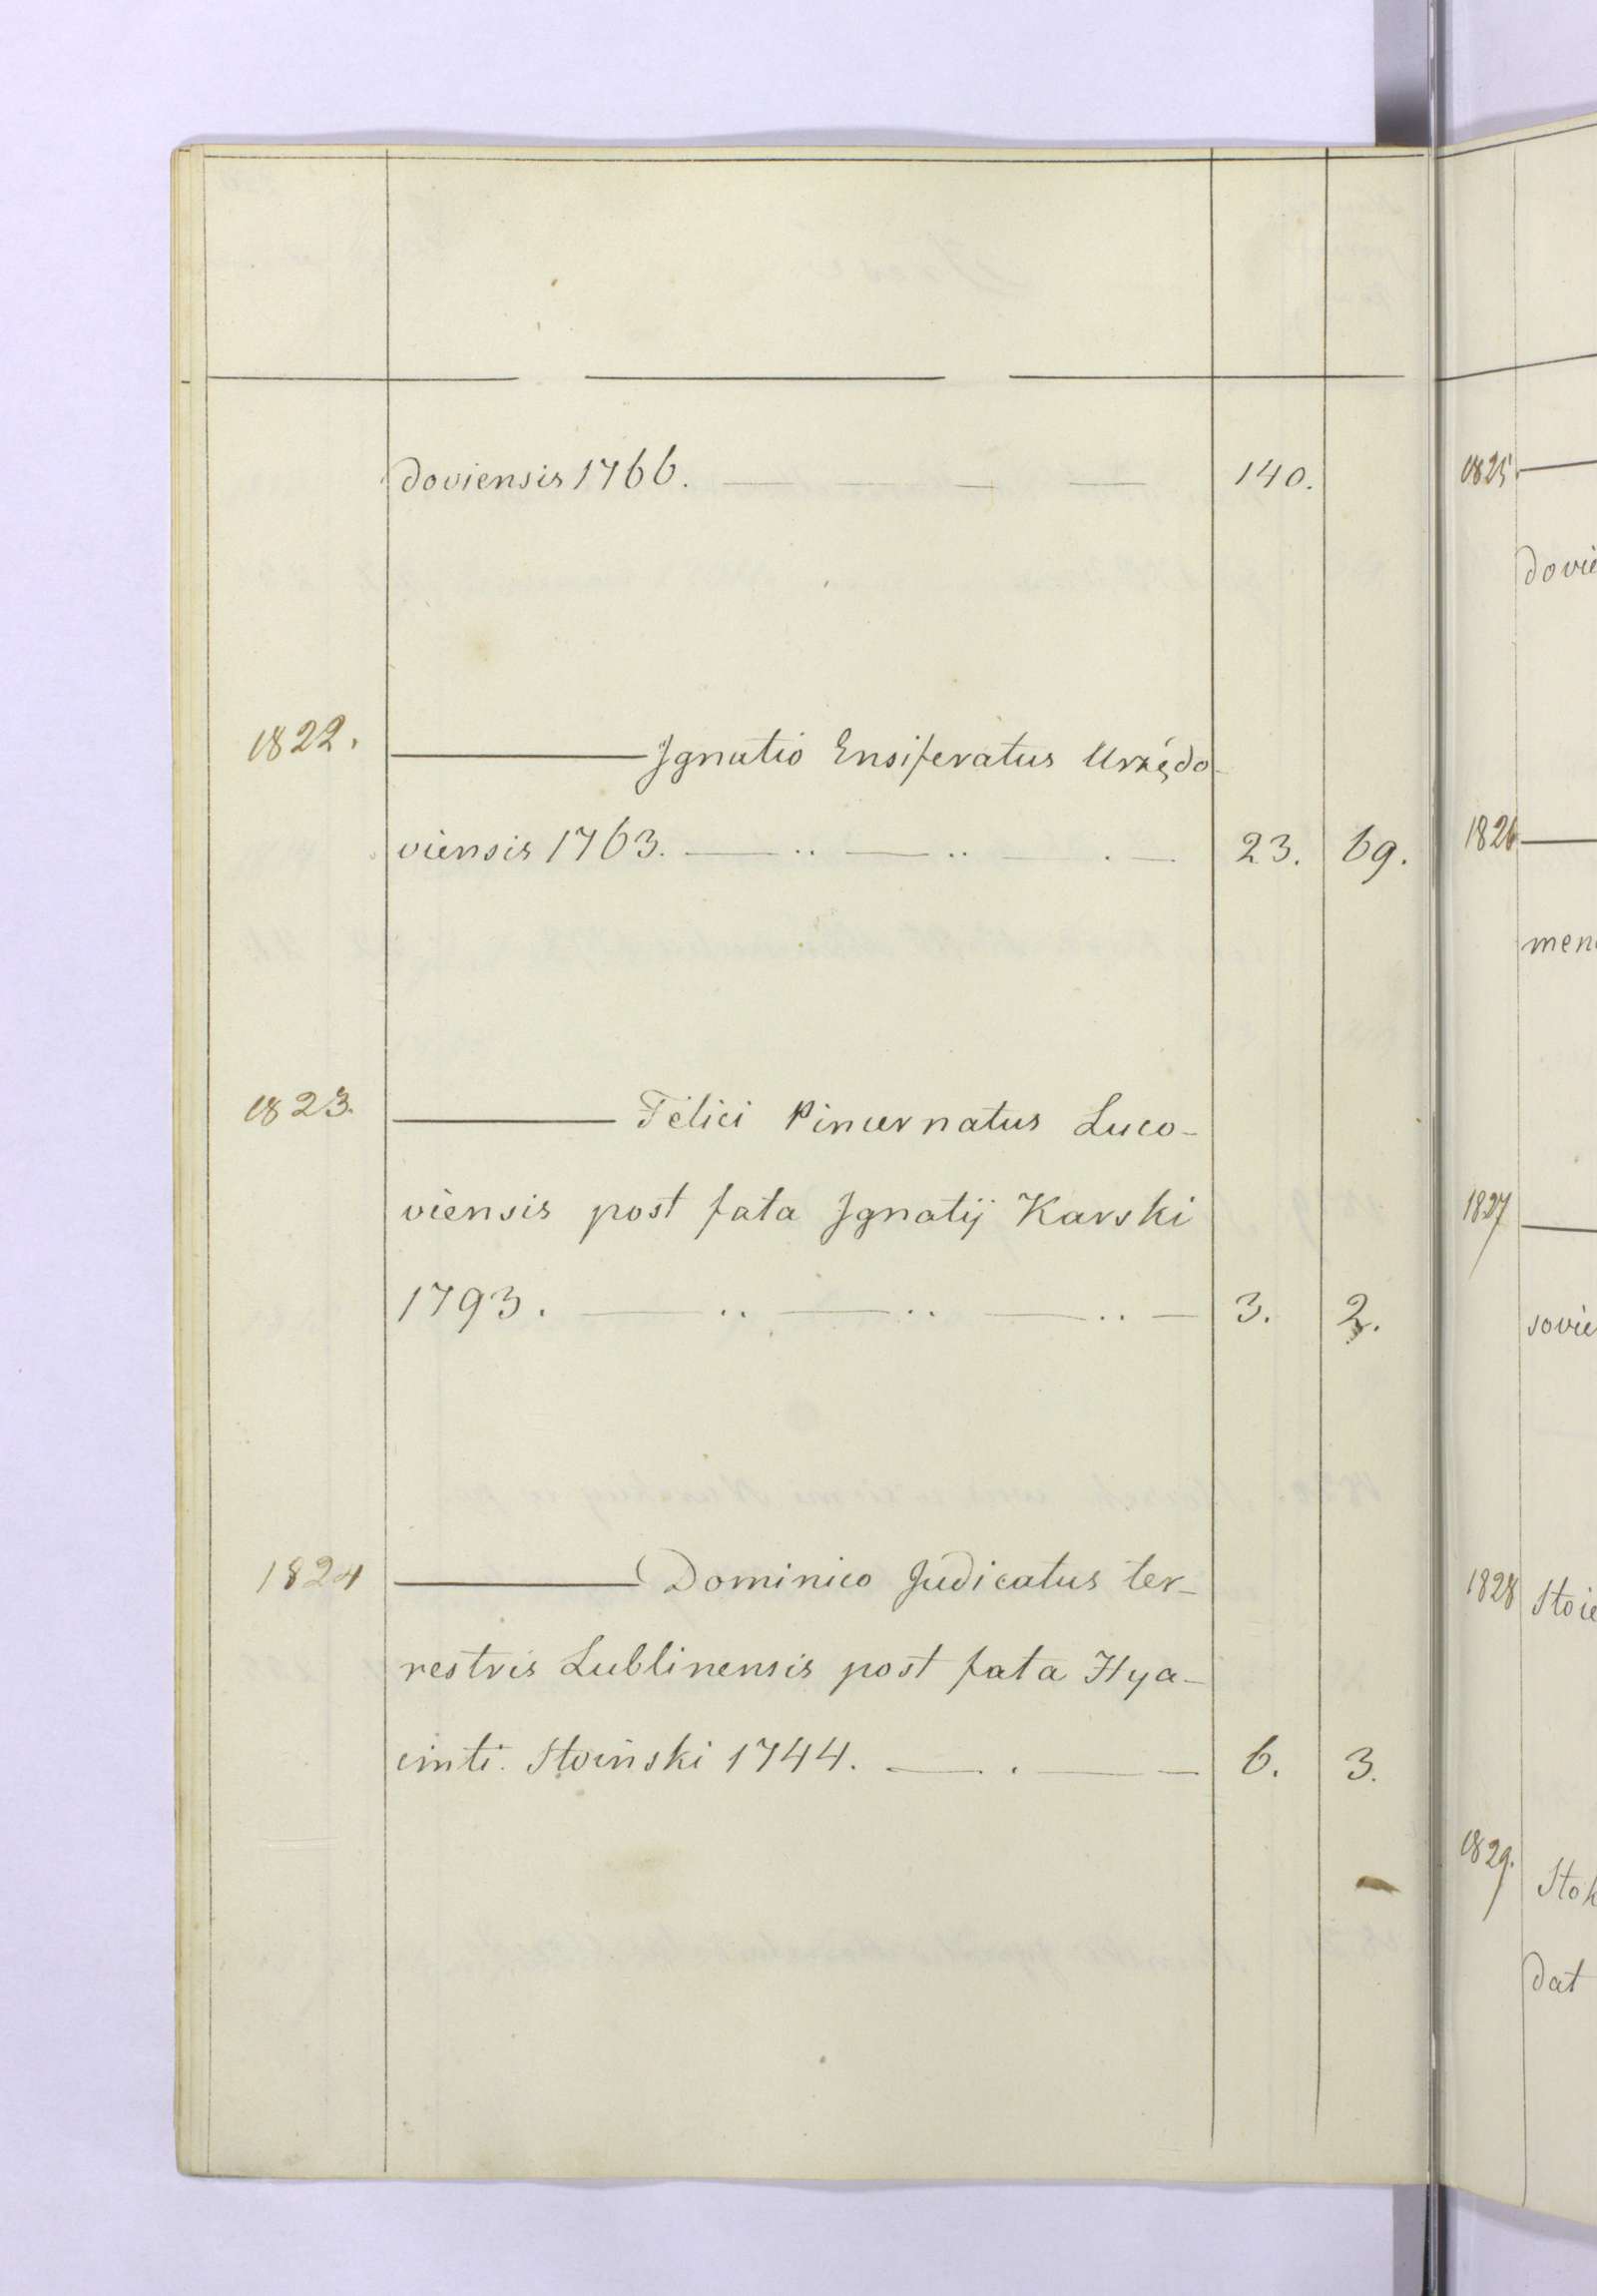 doviensis 1766. — — — — 140.
1822. ——— Ignatio Ensiferatus Urzędo-
viensis 1763. — .. — .. — . — 23. 69.
1823. ——— Felici Pincernatus Luco-
viensis post fata Ignatij Karski
1793. — .. — .. — .. — 3. 2.
1824 ——— Dominico Judicatus ter-
restris Lublinensis post fata Hya-
cinti. Stoiński 1744. — . — — 6. 3.
1825. —
dovie
1826 —
men
1827 —
sovie
1828 Stoie
1829. Stok
dat